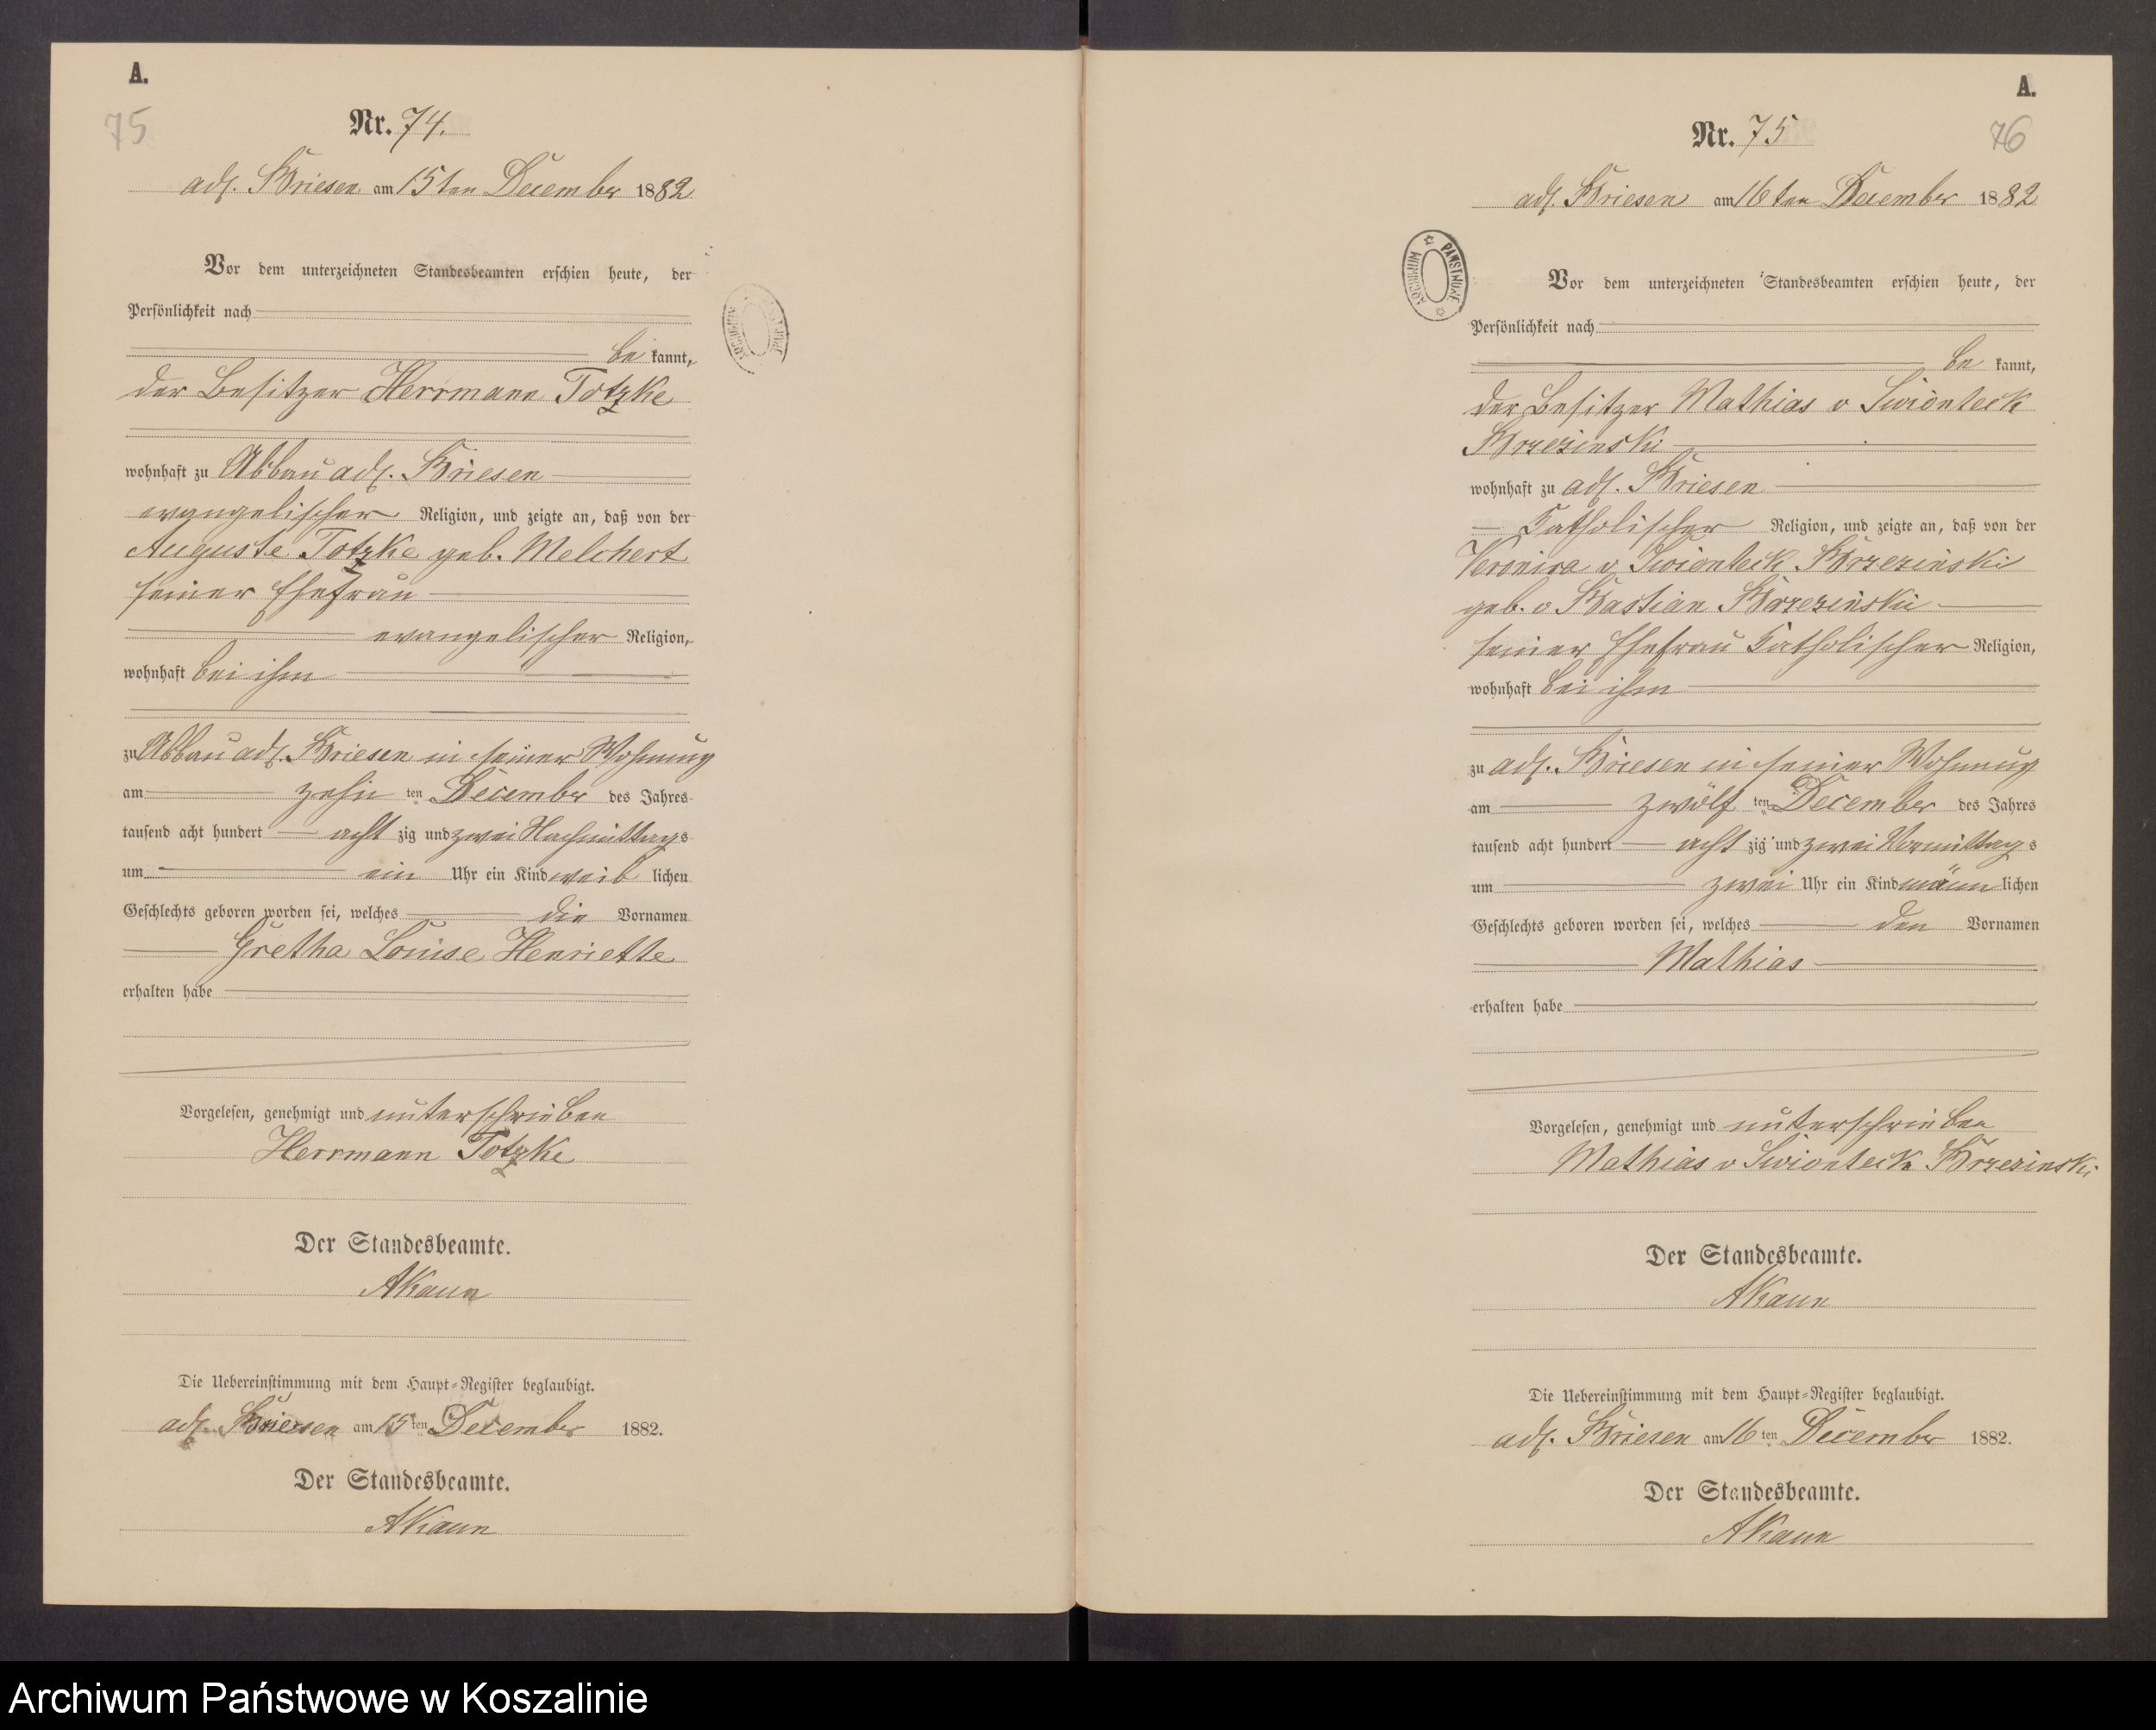 A.
75
Nr. 74.
adl. Briesen am 15ten December 1882
Vor dem unterzeichneten Standesbeamten erschien heute, der
Persönlichkeit nach
be kannt,
der Besitzer Herrmann Totzke
wohnhaft zu Abbau adl. Briesen
evangelischer Religion, und zeigte an, daß von der
Auguste Totzke geb. Melchert
seiner Ehefrau
evangelischer Religion,
wohnhaft bei ihm
zu Abbau adl. Briesen in seiner Wohnung
am zehn ten December des Jahres
tausend acht hundert acht zig und zwei Nachmittags
um ein Uhr ein Kind weib lichen
Geschlechts geboren worden sei, welches die Vornamen
Gretha Louise Henriette
erhalten habe
Vorgelesen, genehmigt und unterschrieben
Herrmann Totzke
Der Standesbeamte.
AKaun
Die Uebereinstimmung mit dem Haupt-Register beglaubigt.
adl. Briesen am 15 ten December 1882.
Der Standesbeamte.
AKaun
A.
76
Nr. 75
adl. Briesen am 16ten December 1882
ARCHIWUM PAŃSTWOWE
Vor dem unterzeichneten Standesbeamten erschien heute, der
Persönlichkeit nach
be kannt,
der Besitzer Mathias v Swionteck
Brzezinski
wohnhaft zu adl. Briesen
Katholischer Religion, und zeigte an, daß von der
Veronica v Swionteck Brzezinski
geb. v Bastian Brzezinski
seiner Ehefrau Katholischer Religion,
wohnhaft bei ihm
zu adl. Briesen in seiner Wohnung
am zwölf ten December des Jahres
tausend acht hundert acht zig und zwei Vormittags
um zwei Uhr ein Kind männ lichen
Geschlechts geboren worden sei, welches den Vornamen
Mathias
erhalten habe
Vorgelesen, genehmigt und unterschrieben
Mathias v Swionteck Brzezinski
Der Standesbeamte.
AKaun
Die Uebereinstimmung mit dem Haupt-Register beglaubigt.
adl. Briesen am 16 ten December 1882.
Der Standesbeamte.
AKaun
Archiwum Państwowe w Koszalinie